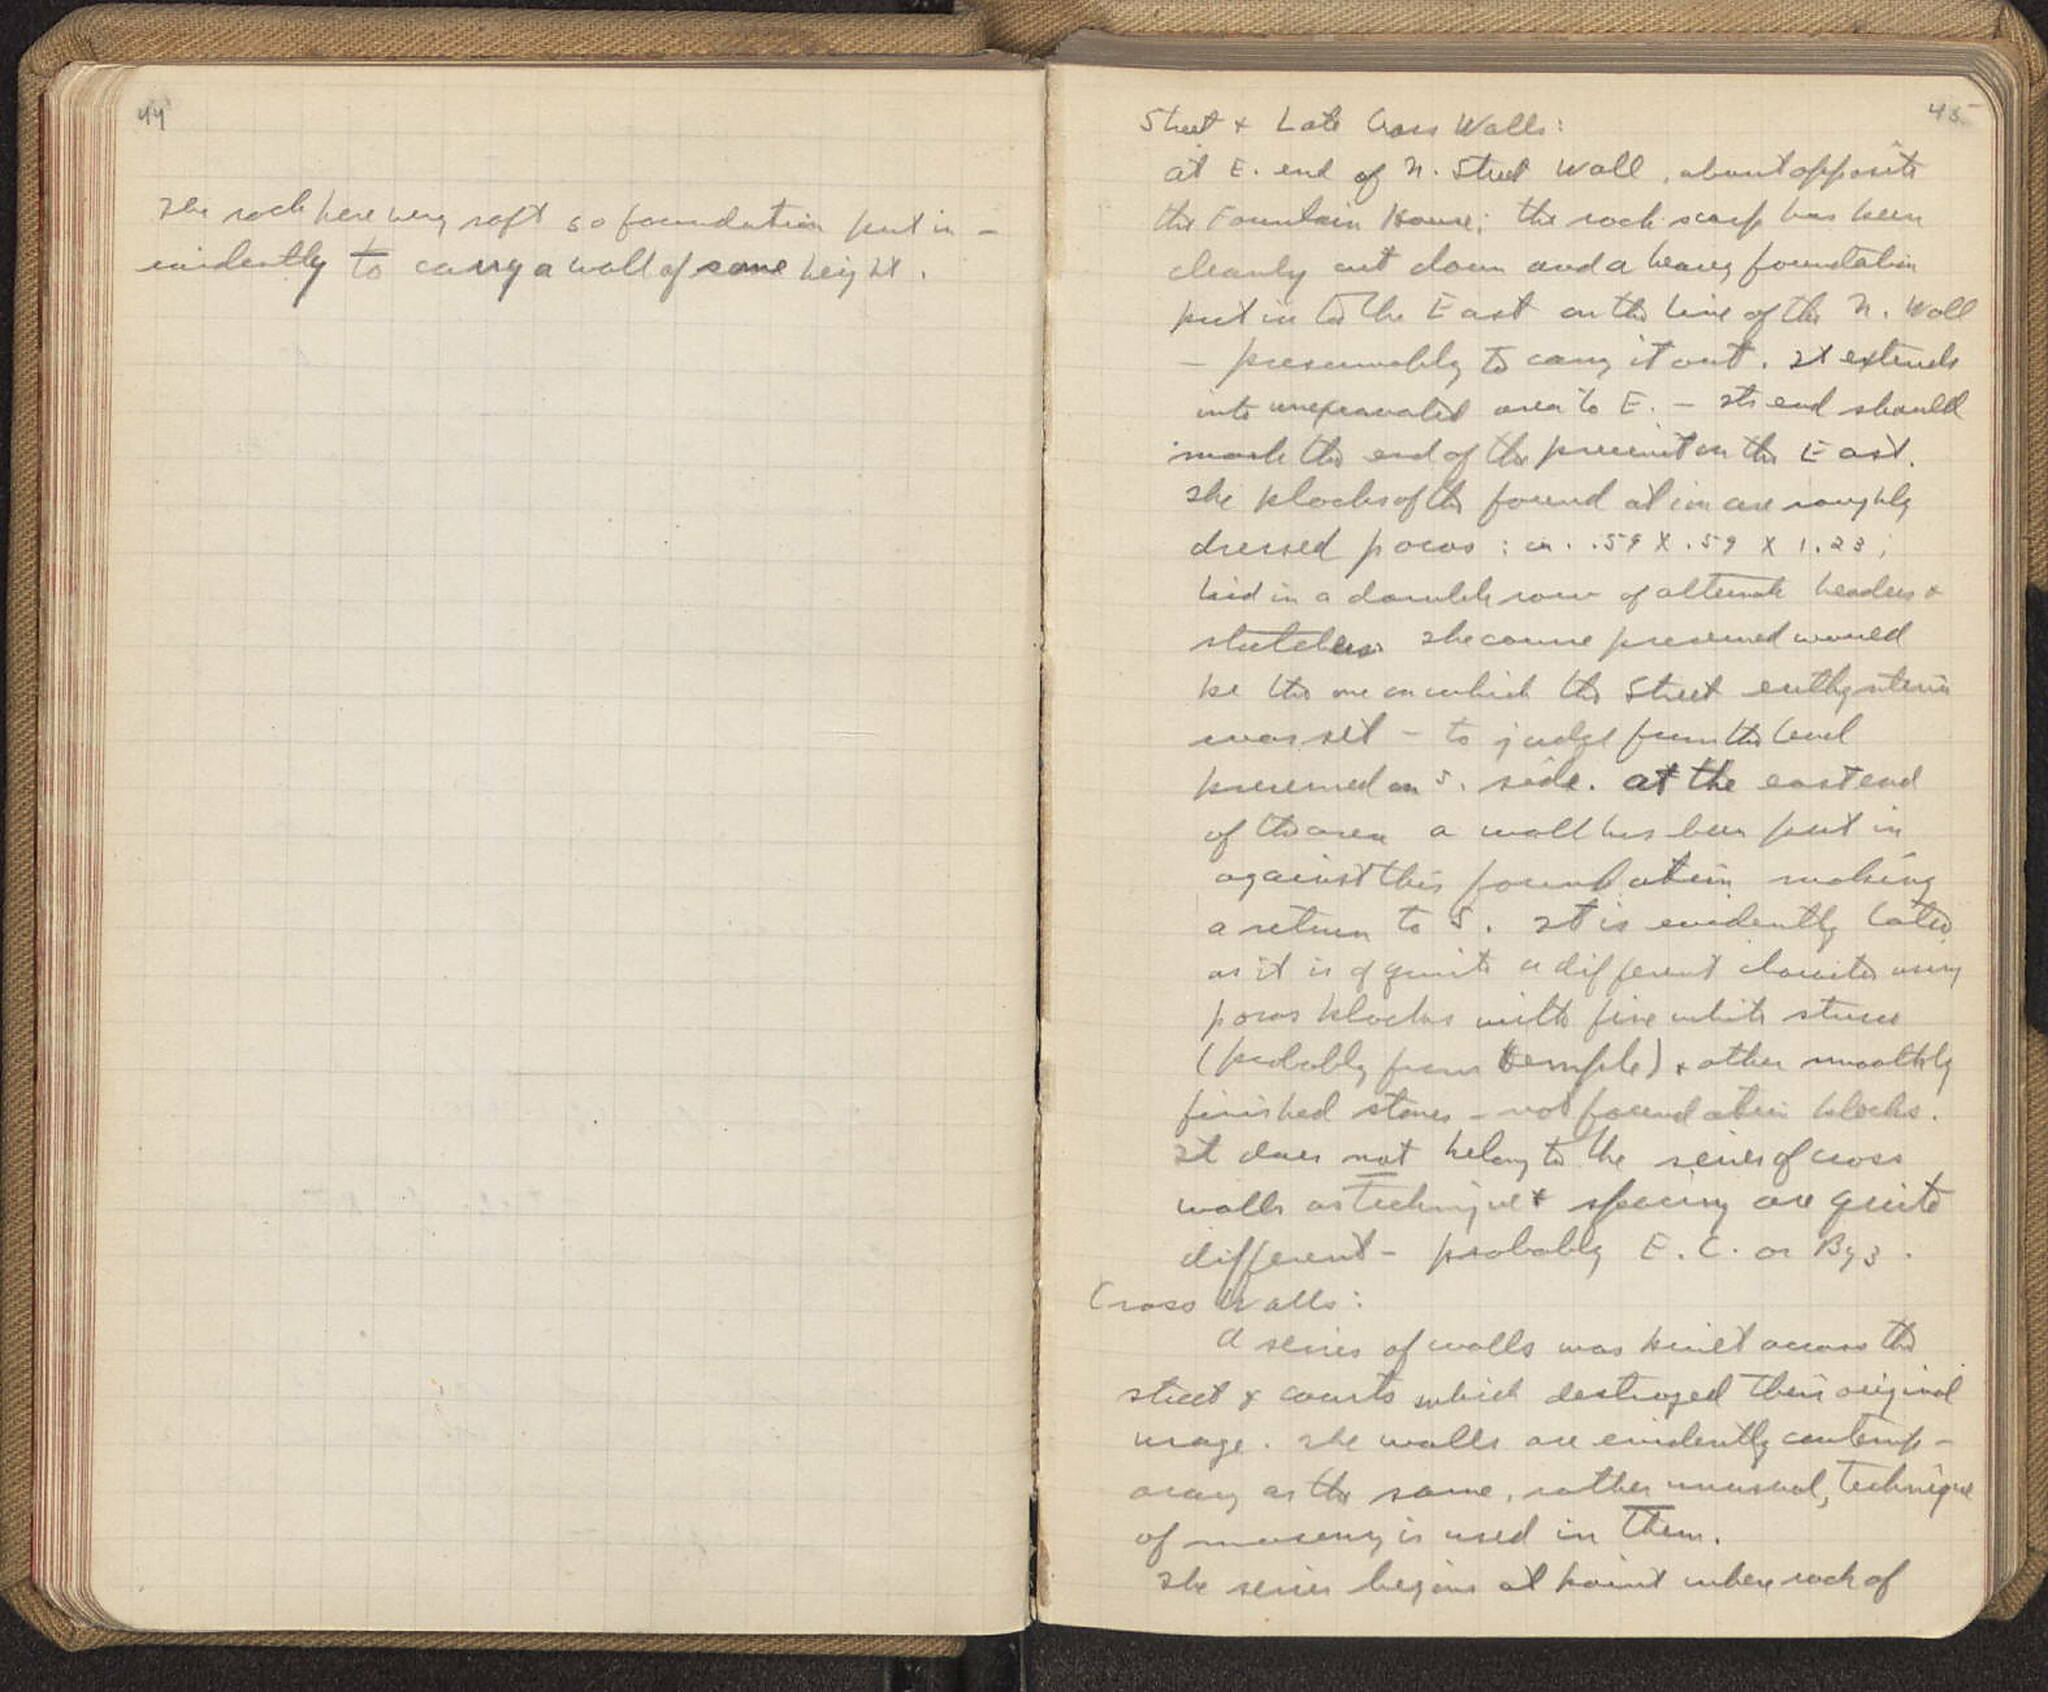 44
The rock here very soft so foundation put in -
evidently to carry a wall of some height.
45
Street & Late Cross Walls:
at E. end of N. Street Wall, about opposite
the Fountain House; the rock scarp has been
cleanly cut down and a heavy foundation
put in to the East on the line of the N. Wall
- presumably to carry it out. It extends
into unexcavated area to E. - its end should
mark the end of the precinct on the East.
The blocks of the foundation are roughly
dressed poros: ca. .59 X .59 X 1.23;
laid in a double row of alternate headers &
stretchers. The course preserved would
be the one on which the Street euthynteria
was set - to judge from the level
preserved on S. side. at the east end
of the area a wall has been put in
against this foundation making
a return to S. It is evidently later
as it is of quite a different character using
poros blocks with fine white stucco
(probably from temple) & other smoothly
finished stones - not foundation blocks.
It does not belong to the series of cross
walls as technique & spacing are quite
different - probably E. C. or Byz.
Cross Walls:
A series of walls was built across the
street & courts which destroyed their original
usage. The walls are evidently contemp-
orary as the same, rather unusual, technique
of masonry is used in them.
The series begins at point where rock of